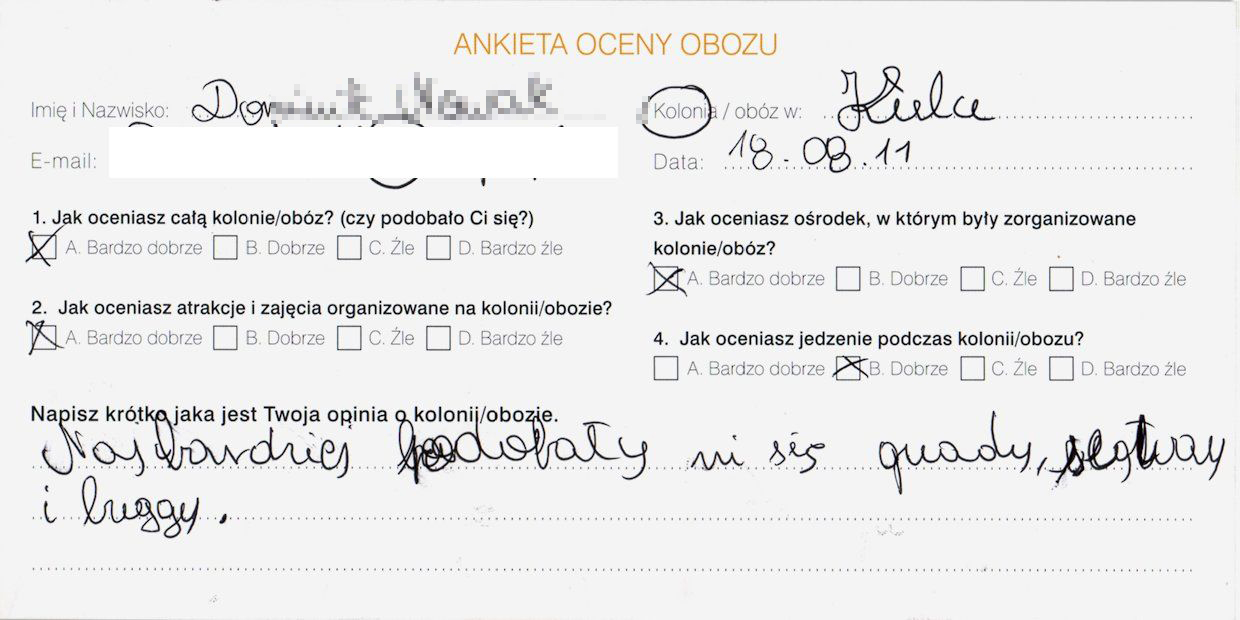 ANKIETA OCENY OBOZU
Imię i Nazwisko:
Kolonia / obóz w: Kulce
E-mail:
Data: 18.08.11
1. Jak oceniasz całą kolonie/obóz? (czy podobało Ci się?)
A. Bardzo dobrze B. Dobrze C. Źle D. Bardzo źle
2. Jak oceniasz atrakcje i zajęcia organizowane na kolonii/obozie?
A. Bardzo dobrze B. Dobrze C. Źle D. Bardzo źle
3. Jak oceniasz ośrodek, w którym były zorganizowane
kolonie/obóz?
A. Bardzo dobrze B. Dobrze C. Źle D. Bardzo źle
4. Jak oceniasz jedzenie podczas kolonii/obozu?
A. Bardzo dobrze B. Dobrze C. Źle D. Bardzo źle
Napisz krótko jaka jest Twoja opinia o kolonii/obozie.
Najbardziej podobały mi się quady,
i buggy.